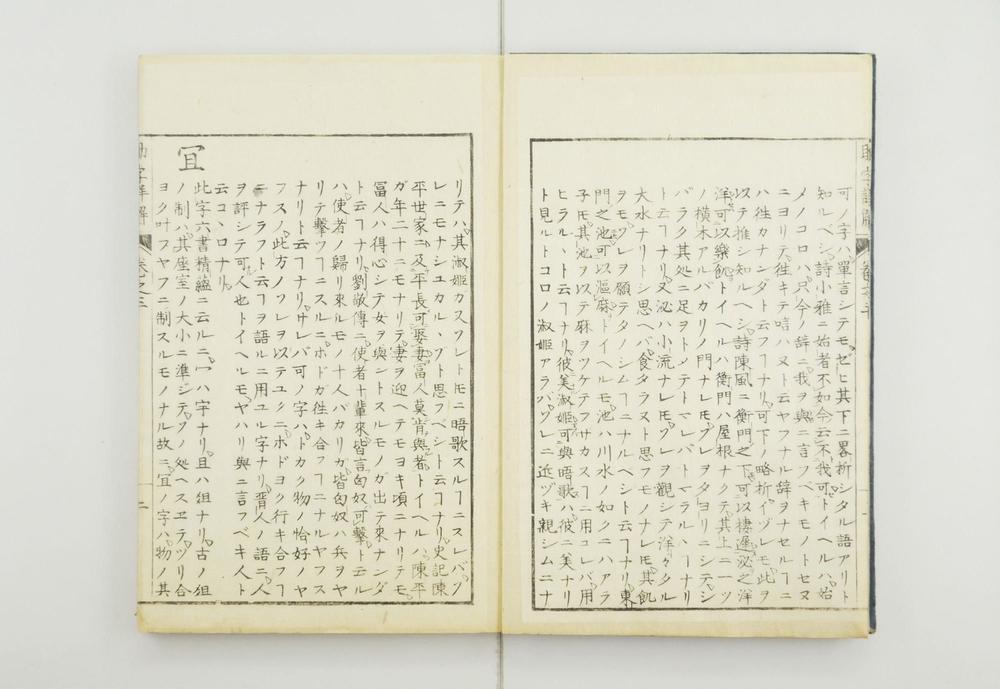 可ノ字ハ單言シテモ。ゼヒ其下ニ畧折シタル語アリト
知ルベシ。詩小雅ニ始者不如今云不我可。トイヘルハ。始
メノコロハ。只今ノ辞ニ我ヲ與ニ言フベキモノトセヌ
ニヨリテ。徃キテ唁ハヌト云ヤフナル辞ヲナセルヿニ
ハ徃カナンダト云フヿナリ。可下ノ略析イヅレモ。此ヲ
以テ推シ知ルヘシ。詩陳風ニ衡門之下。可以棲遲。泌之洋
洋。可以樂飢。トイヘルハ衡門ハ屋根ナクテ。其上ニ一ツ
ノ横木アルバカリノ門ナレモ。ソレヲタヨリニシテ。シ
バラク其処ニ足ヲトメテトマレバトマラルヽヿナリ
ト云フヿナリ。又泌ハ小流ナレモ。ソレヲ觀シテ洋々タル
大水ナリトシ思ヘバ。食タラスト思フモノナレモ。其飢
ヲモワレヲ願テタノシムヿニナルベシト云フヿナリ。東
門之池。可以漚麻。トイヘルモ。池ハ川水ノ如クニハアラ
子モ其池ヲ以テ麻ヲツケテフサカスヿニ用コレバ。用
ヒラルヽト云フヿナリ。彼美淑姫。可與晤歌。ハ彼ニ美ナリ
ト見ルトコロノ淑姫アラバ。ソレニ近ヅキ親シムニナ
リテハ。其淑姫カスワレトモニ晤歌スルヿニスレバ。ソ
レニモナシユカル、ソト思フベシト云フヿナリ。史記陳
平世家ニ。及平長可娶妻富人莫肯與者。トイヘルハ。陳平
ガ年二十ニモナリテ。妻ヲ迎ヘテモヨキ頃ニナリテモ。
冨人ハ得心シテ女ヲ與ントスルモノガ出テ來ナンダ
ト云フヿナリ。劉敬傳ニ。使者十輩來。皆言匈奴可撃。ト云ル
ハ。使者ノ歸リ來ルモノ十人バカリガ。皆匈奴ハ兵ヲヤ
リテ撃ツフヿニスルニ。ホドガ徃キ合フヿニナルヤフス
ナリト云フヿナリ。サレバ可ノ字ハ。トカク物ノ恰好ノヤ
フスノ。此方ノソレヲ以テユクニ。ホドヨク行キ合フヿ
ニナラフト云フヿヲ語ルニ用ユル字ナリ。晋人ノ語ニ。人
ヲ評シテ可人也トイヘルモ。ヤハリ與ニ言フベキ人ト
云コヽロナリ。
宜
此字六書精緼ニ云ルニ。宀ハ字ナリ。且ハ俎ナリ。古ノ俎
ノ制ハ。其座室ノ大小ニ準ジテ。ソノ処ヘスヱテ。ヅリ合
ヨク叶フヤフニ制スルモノナル故ニ。宜ノ字ハ。物ノ其
助字詳解
卷之三
二